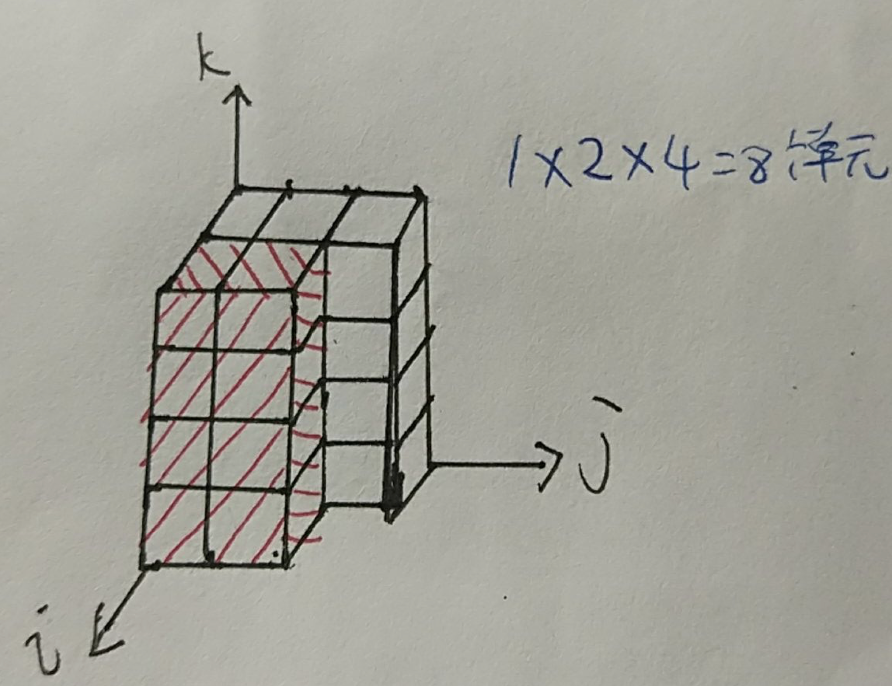 k
1×2×4=8单元
j
i